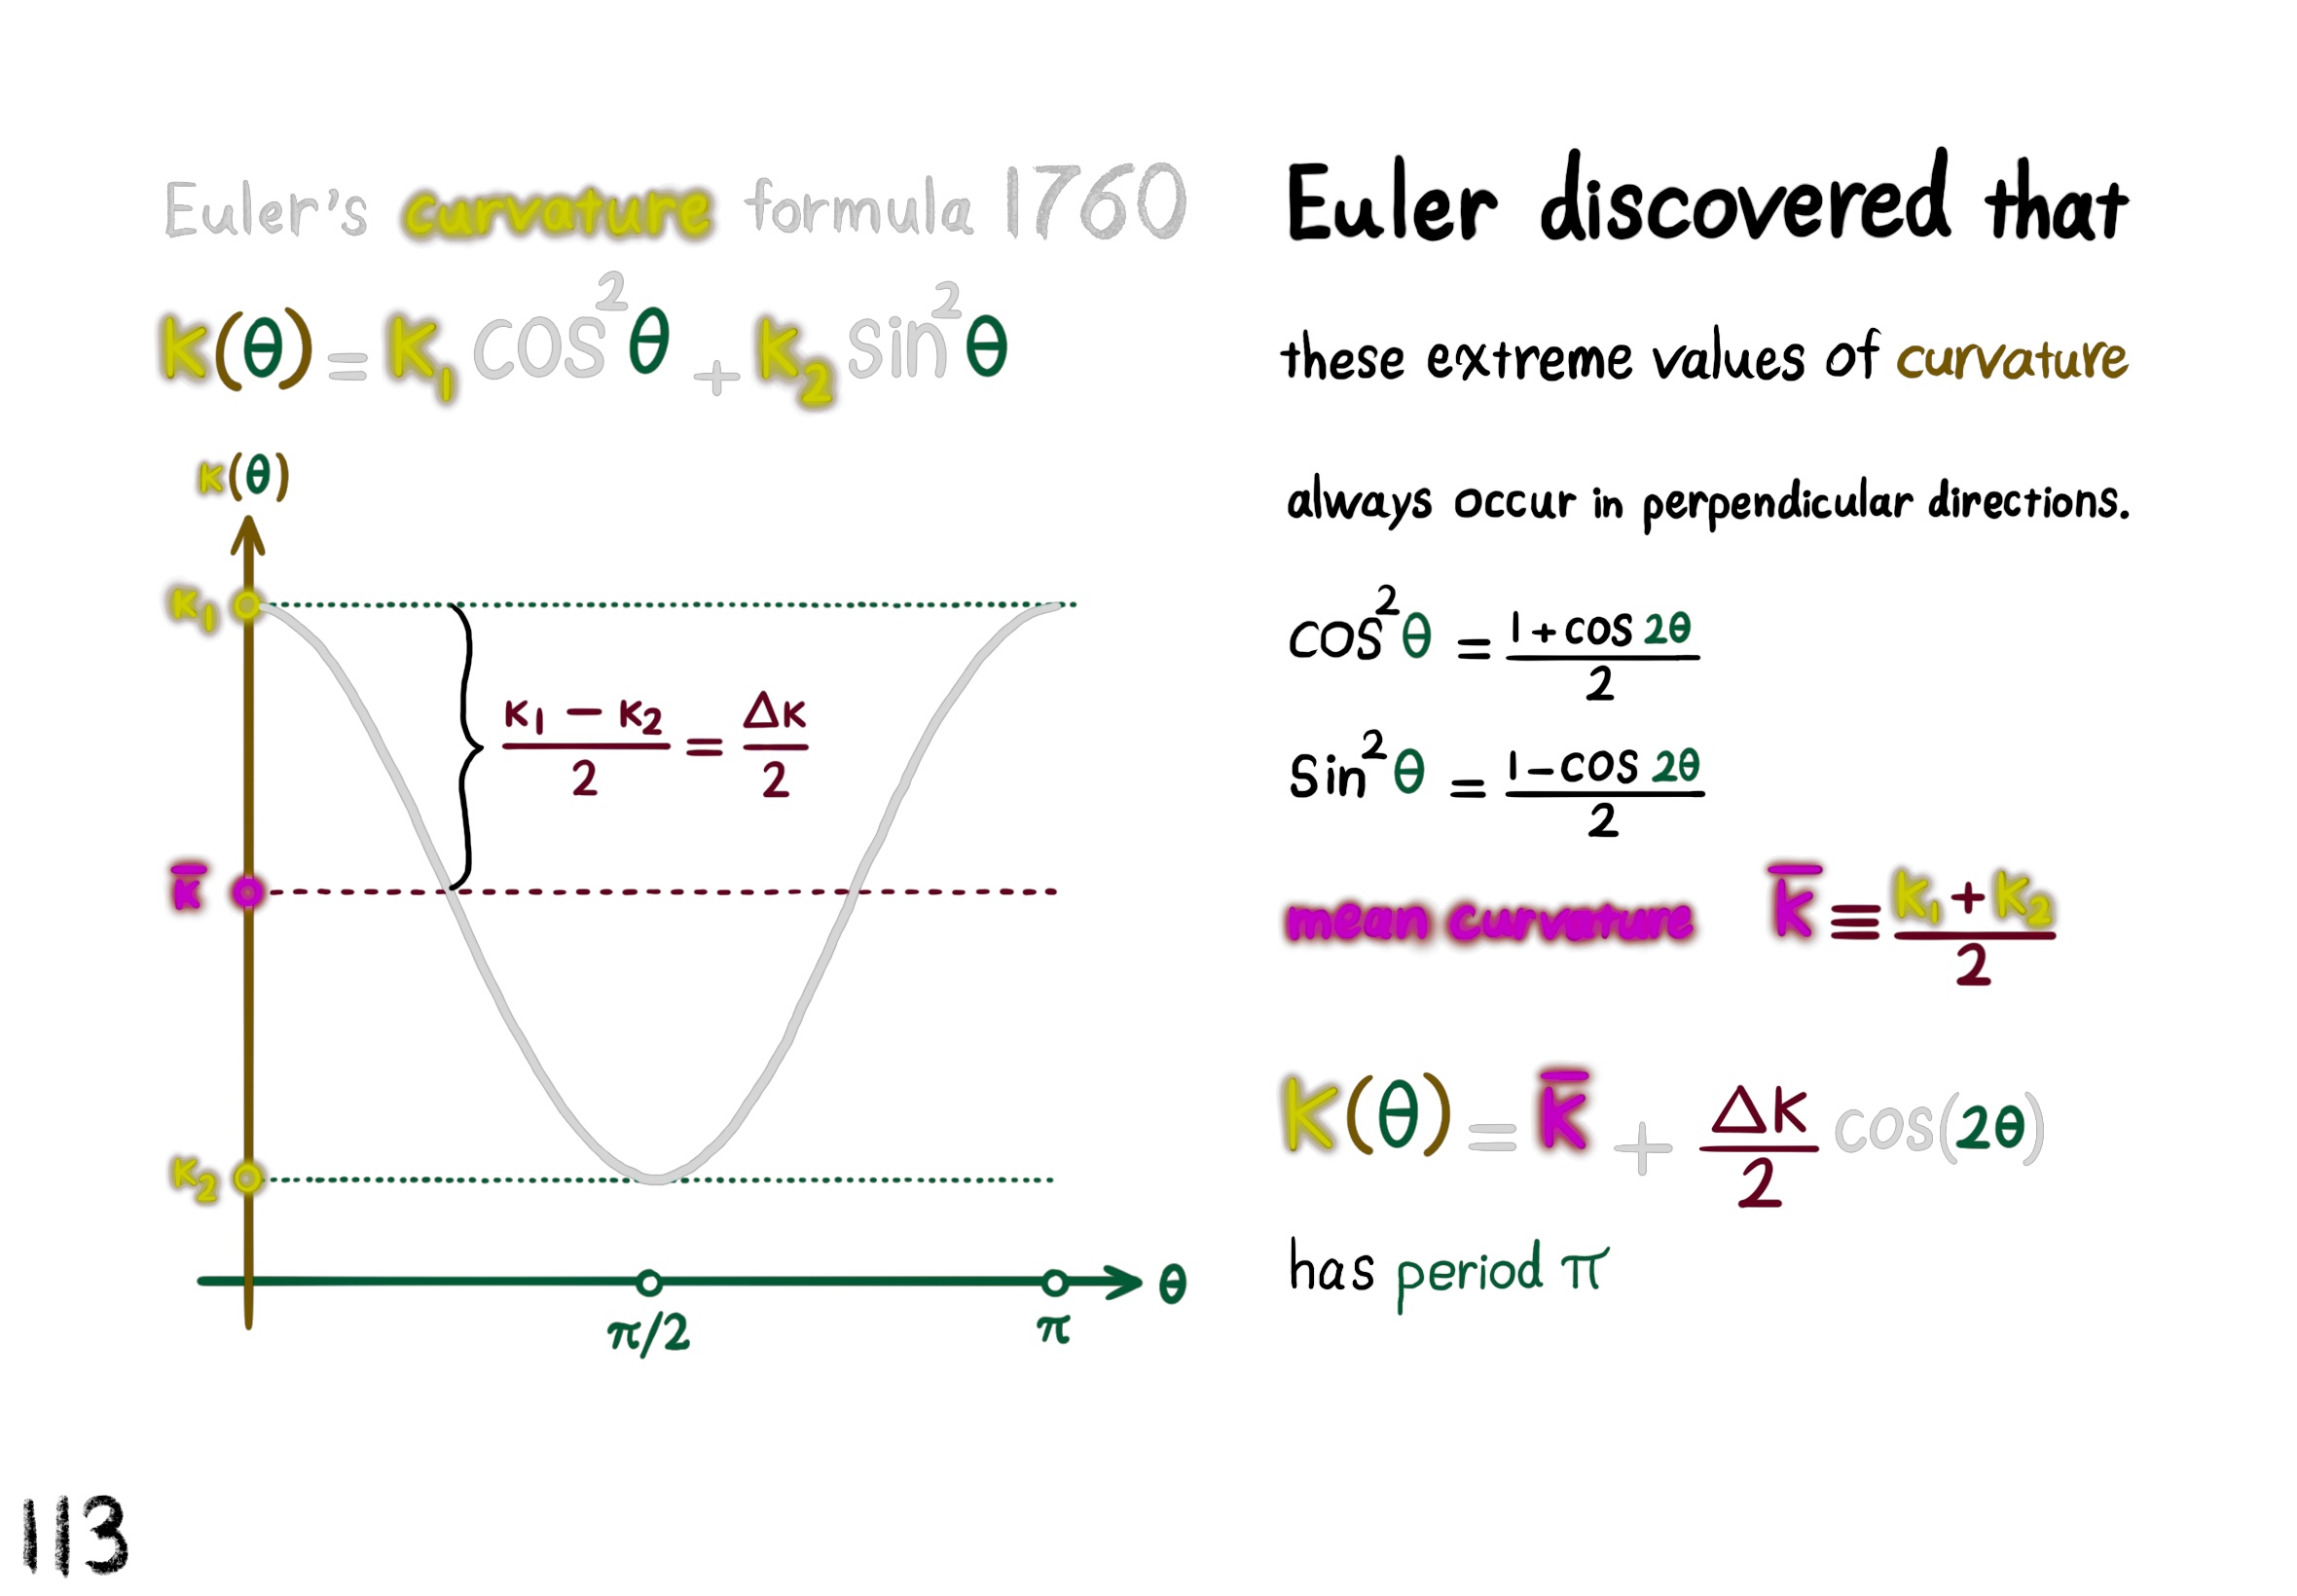 Euler's curvature formula 1760
κ(θ) = κ₁ cos²θ + κ₂ sin²θ
κ(θ)
κ₁
(κ₁ − κ₂)/2 = Δκ/2
κ̅
κ₂
θ
π/2
π
Euler discovered that
these extreme values of curvature
always occur in perpendicular directions.
cos²θ = (1 + cos 2θ)/2
sin²θ = (1 − cos 2θ)/2
mean curvature κ̅ ≡ (κ₁ + κ₂)/2
κ(θ) = κ̅ + Δκ/2 cos(2θ)
has period π
113